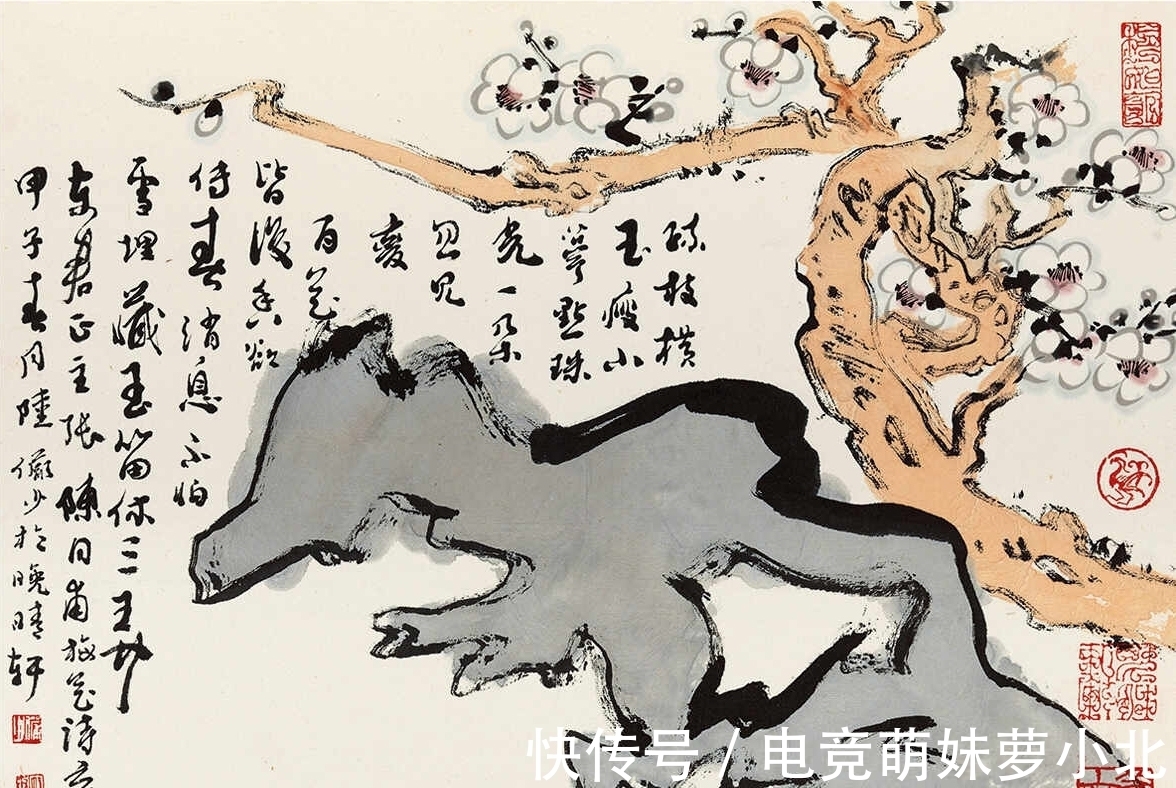 疏枝横
玉瘦小
萼點珠
光一朵
忽先
變
百花
皆後香欲
傳春消息不怕
雪埋藏玉笛休三弄
东君正主張陳同甫梅花詩
甲子春月陸儼少於晚晴軒
快传号 / 电竞萌妹萝小北